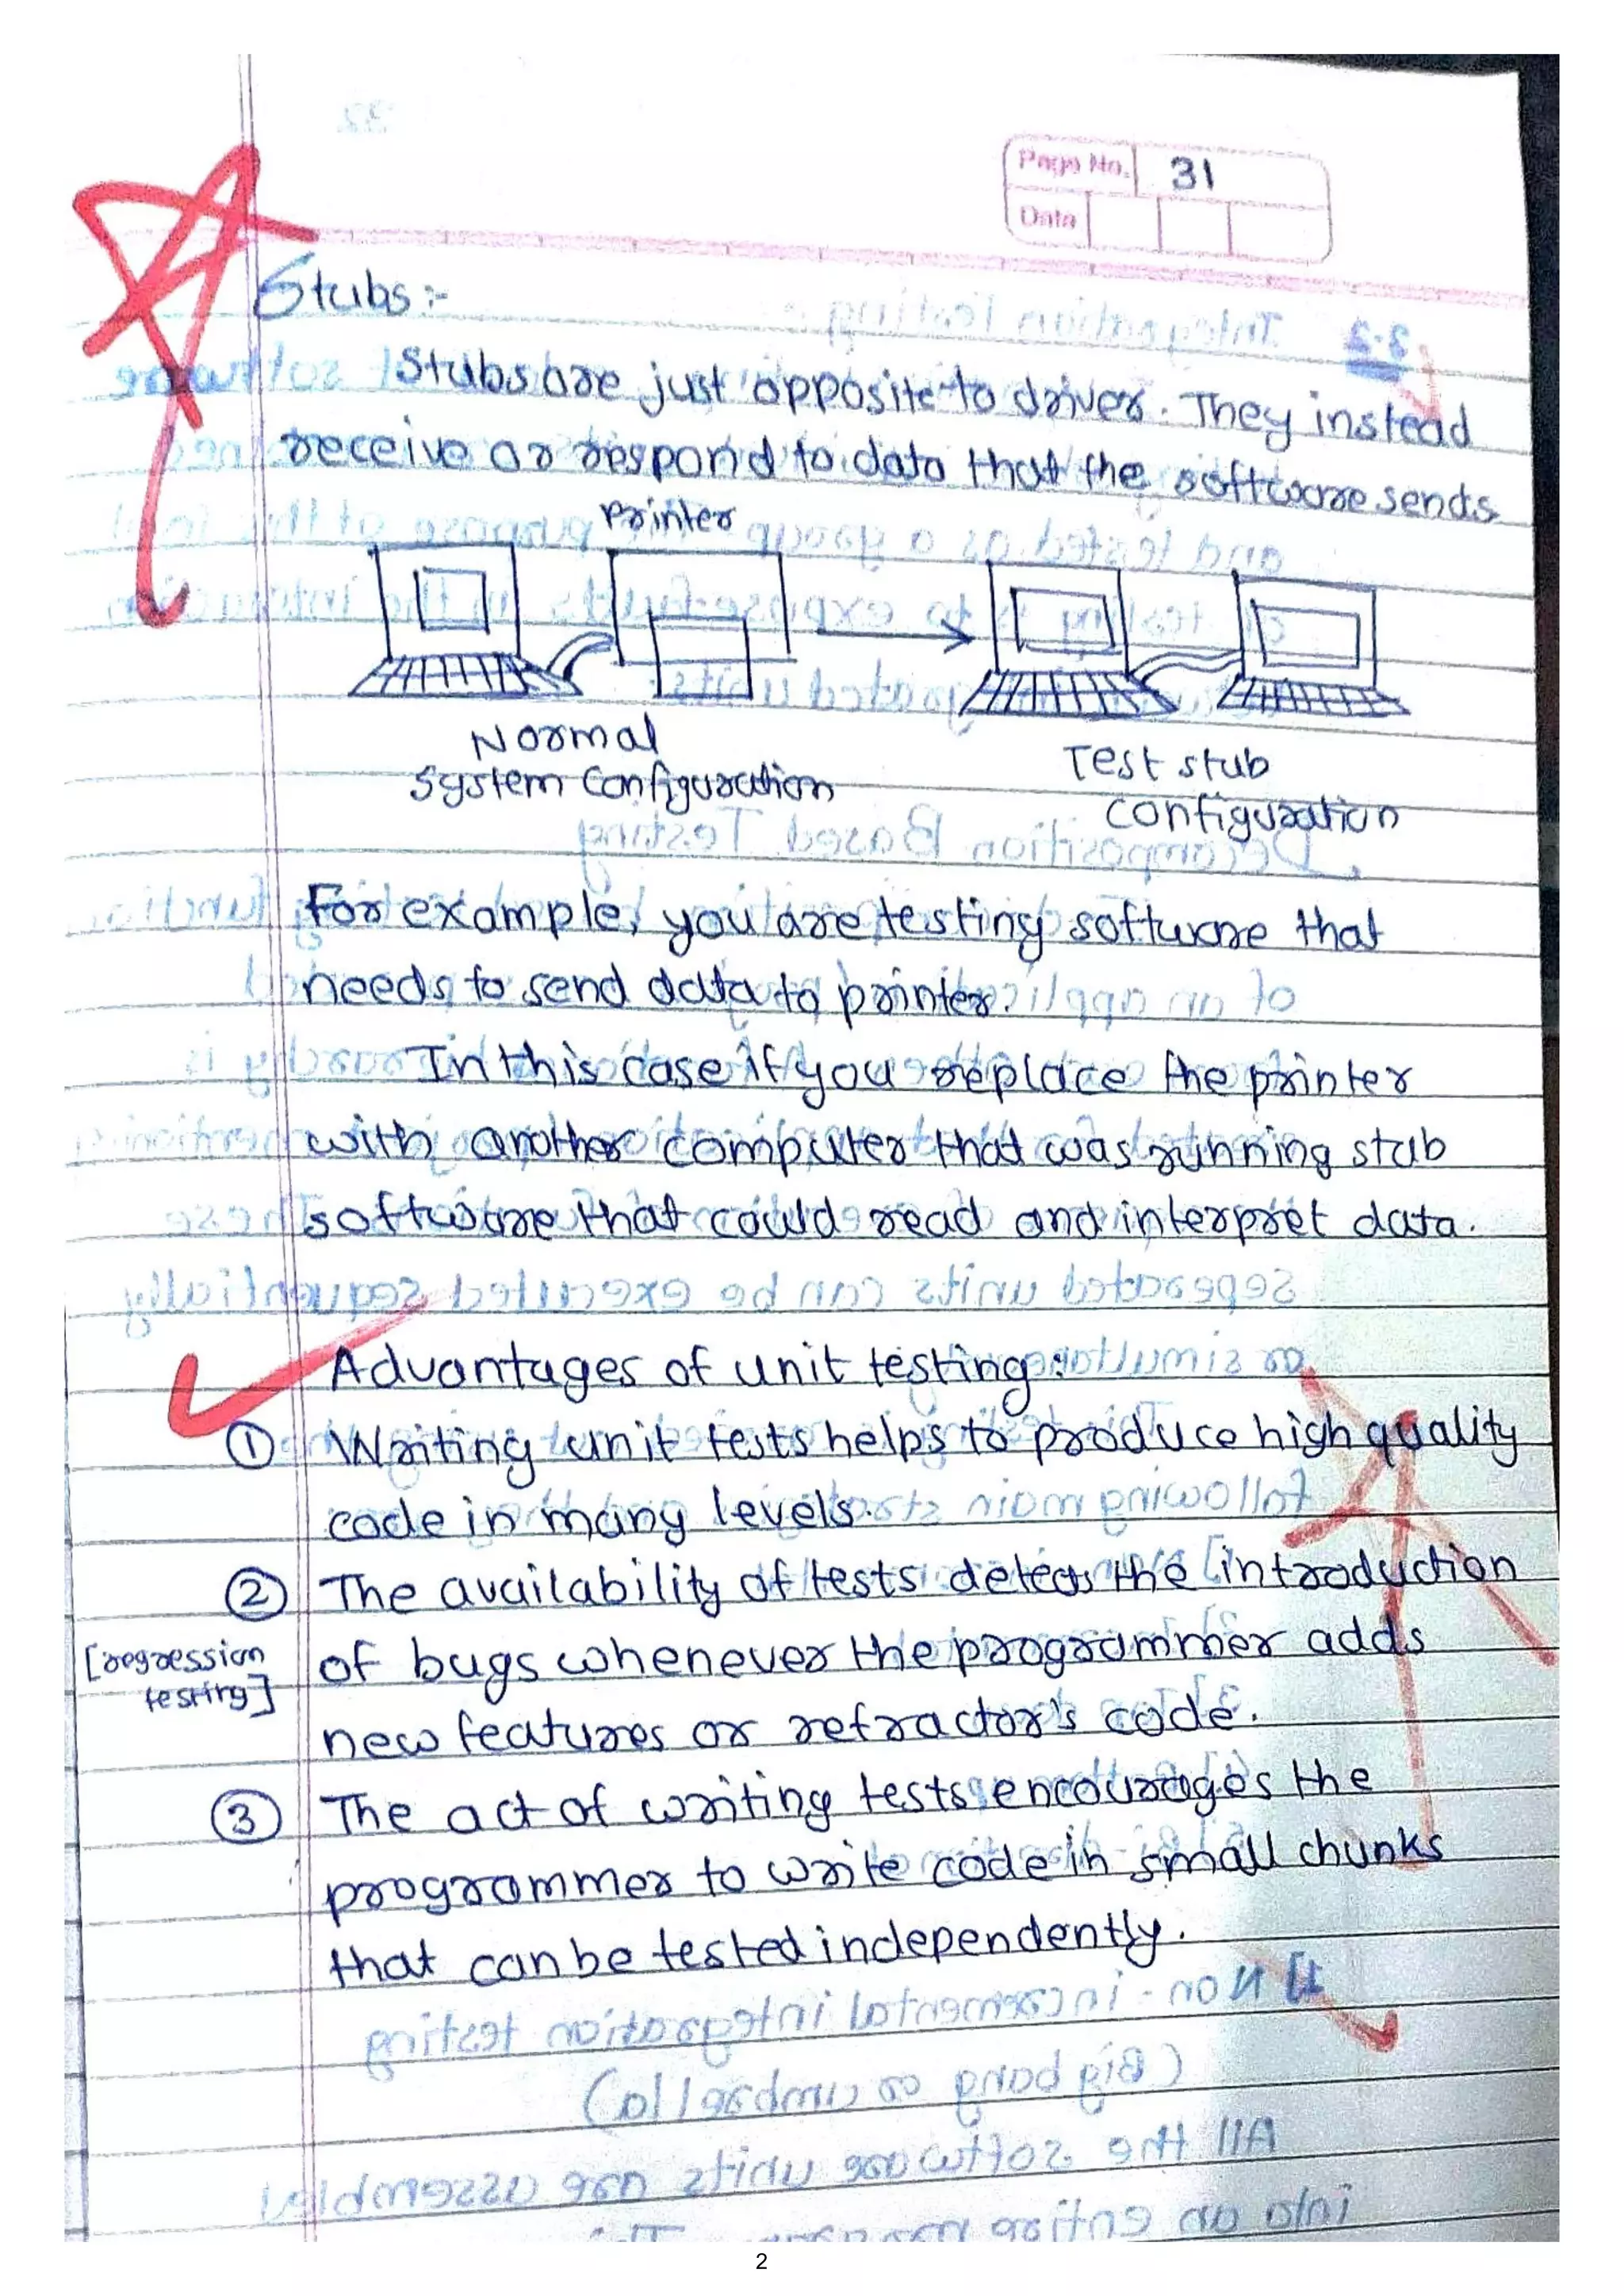 Page No. 31
Date
Stubs :-
Stubs are just opposite to driver. They instead
receive or respond to data that the software sends
Printer
Normal
System Configuration
Test stub
Configuration
For example, you are testing software that
needs to send data to printer.
In this case if you replace the printer
with another computer that was running stub
software that could read and interpret data.
Advantages of unit testing :
① Writing unit tests helps to produce high quality
code in many levels.
② The availability of tests detects the introduction
[regression
testing]
of bugs whenever the programmer adds
new features or refractor's code.
③ The act of writing tests encourages the
programmer to write code in small chunks
that can be tested independently.
2